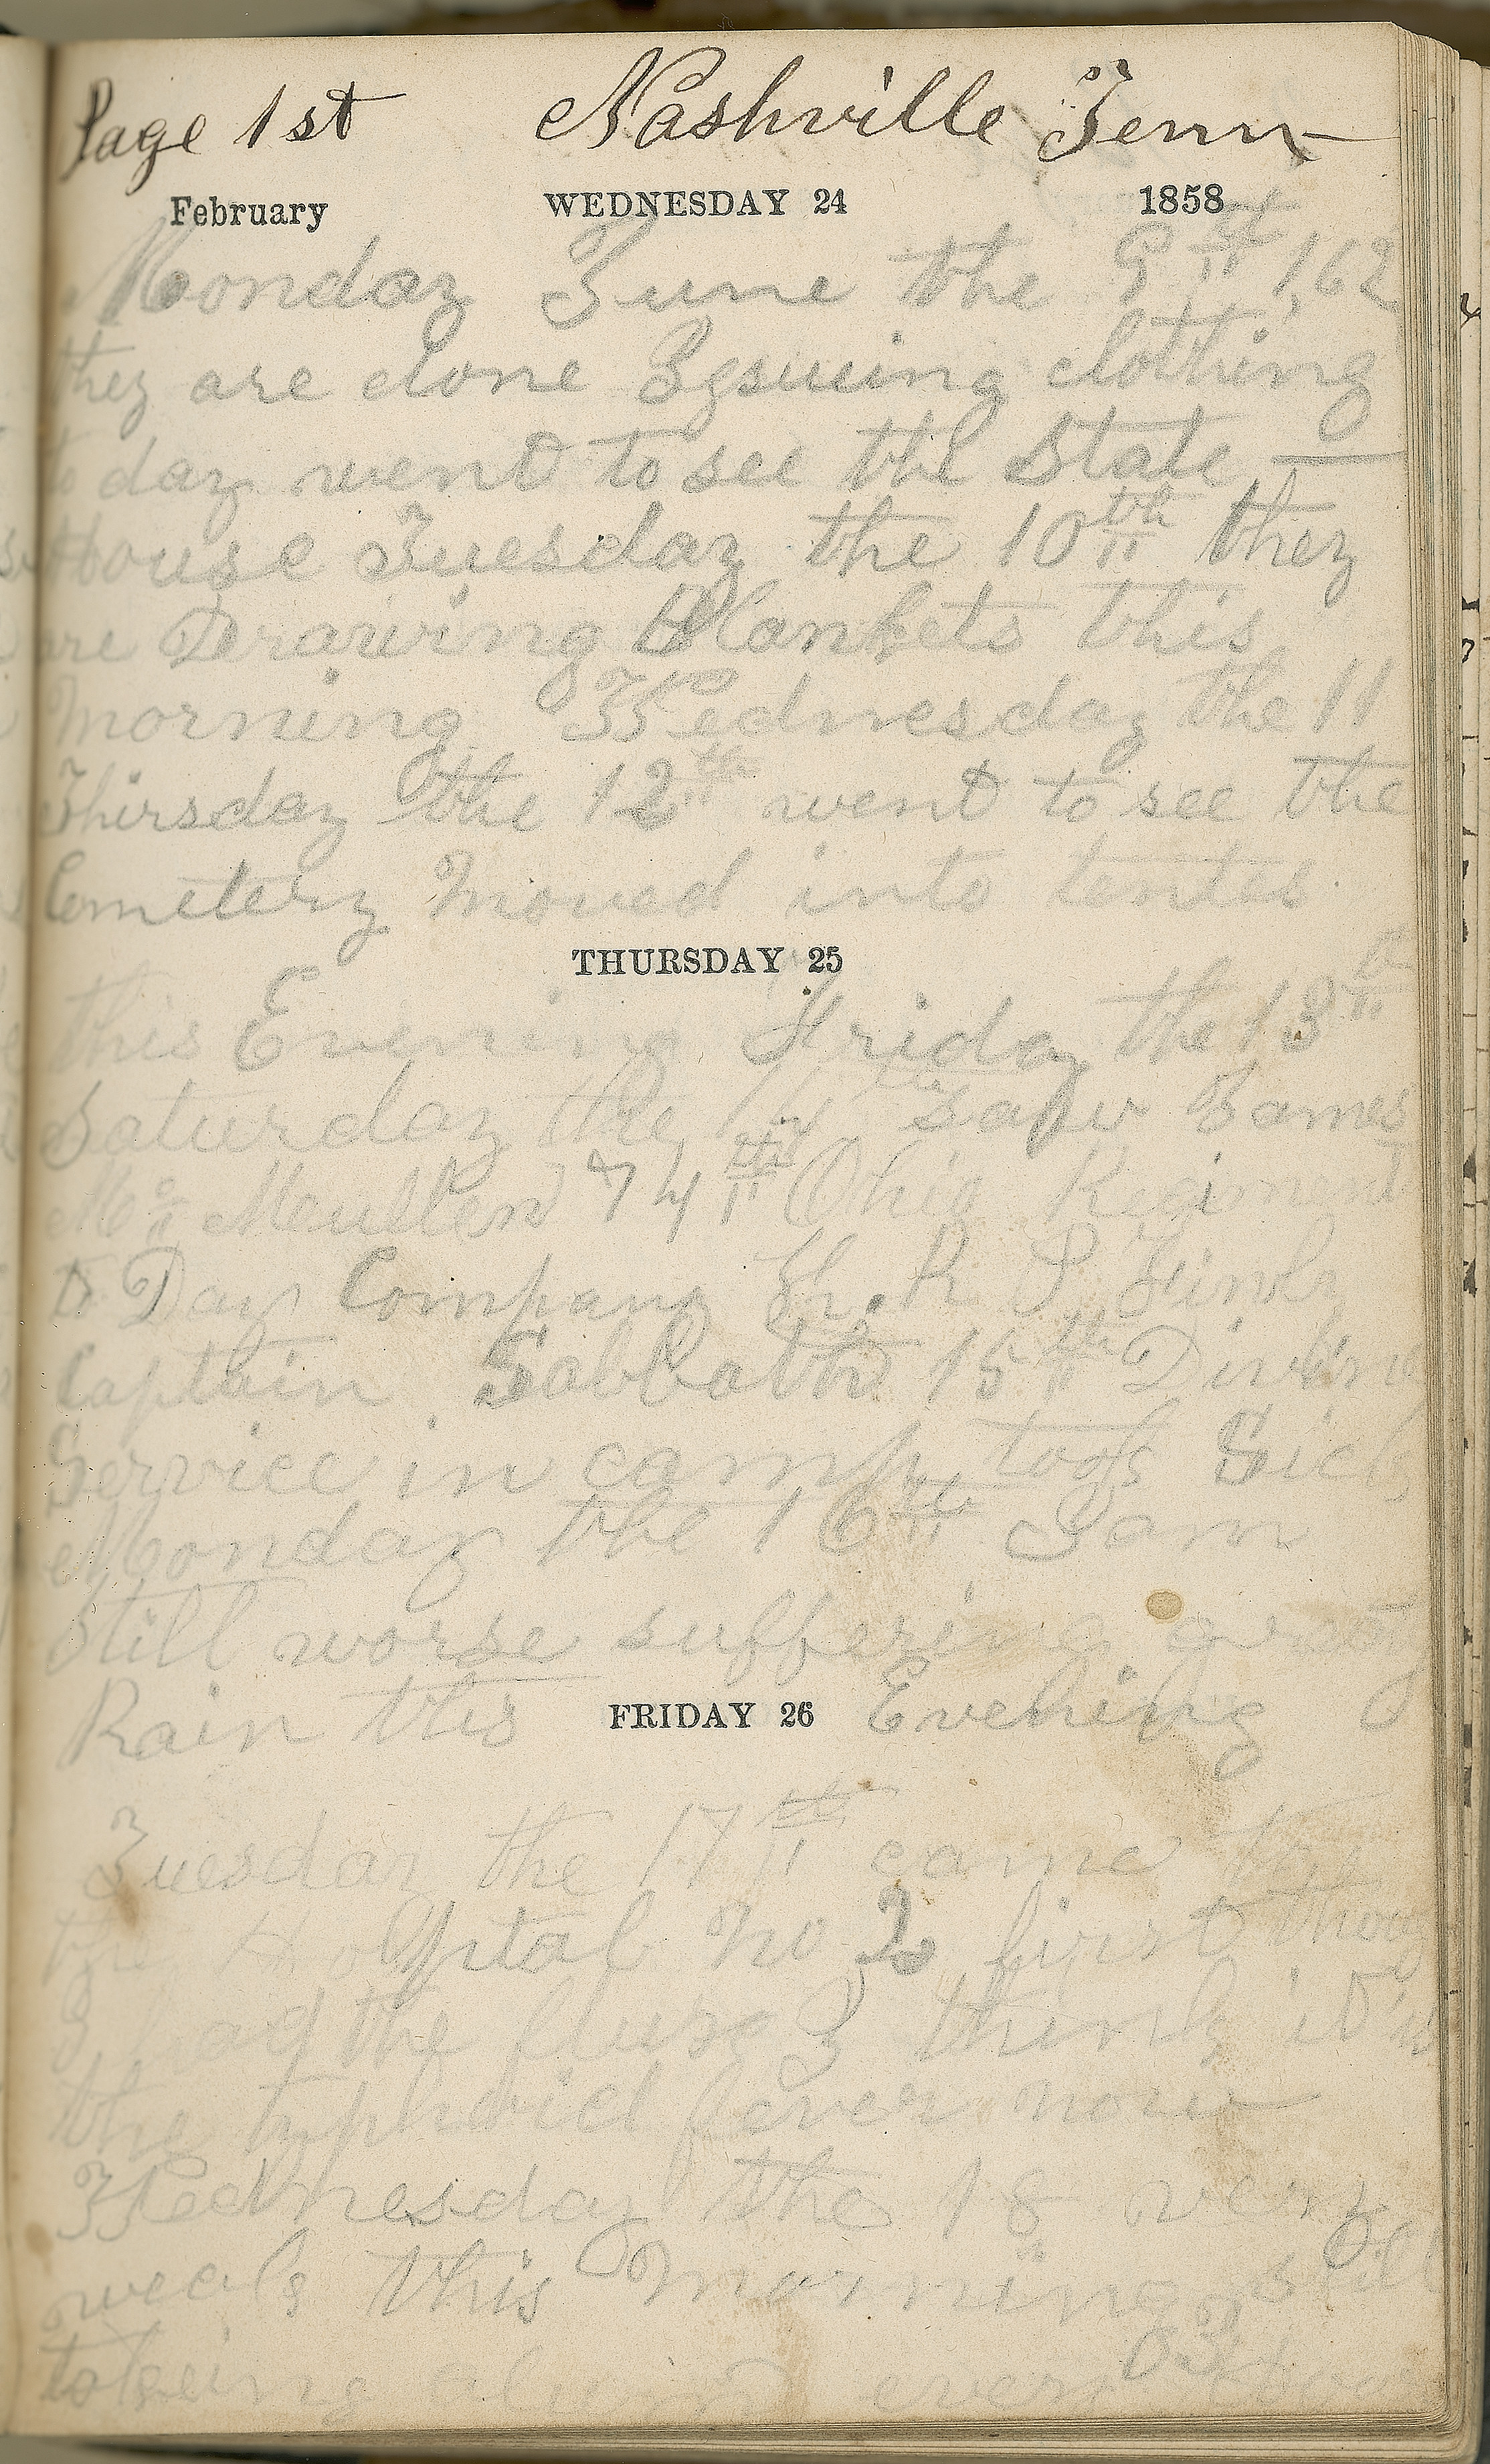 Page 1st Nashville Tenn
February WEDNESDAY 24 1858
Monday June the 9th 1,62
they are done Isgsueing clothing
to day went to see the State —
House Tuesday the 10th they
are Drawing Blankets this
morning Wednesday the 11
Thirsday the 12th went to see the
Cemetery moved into tentes
THURSDAY 25
this Evening Friday the 13th
Saturday the 14th saw James
Mc Meullen 74th Ohio Regiment
to Day Company H. R P Finly
Captain Sabbath 15th Divine
Service in camp took Sick
Monday the 16th I am
Still worse suffering
Rain this FRIDAY 26 Evening
Tuesday the 17th came to
the Hospital No 2 first
I the I think it
the typhoid fever now
Wednesday the 18 very
weak this morning still
takeing every